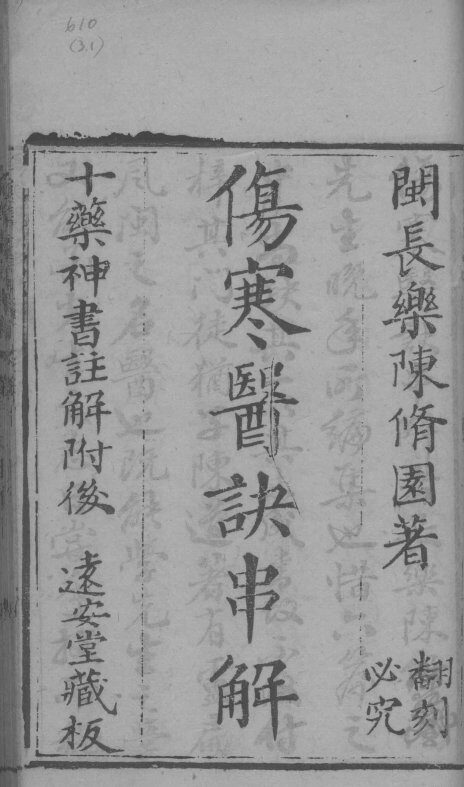 610
(3.1)
閩長樂陳脩園著
翻刻
必究
傷寒醫訣串解
十藥神書註解附後 遠安堂藏板